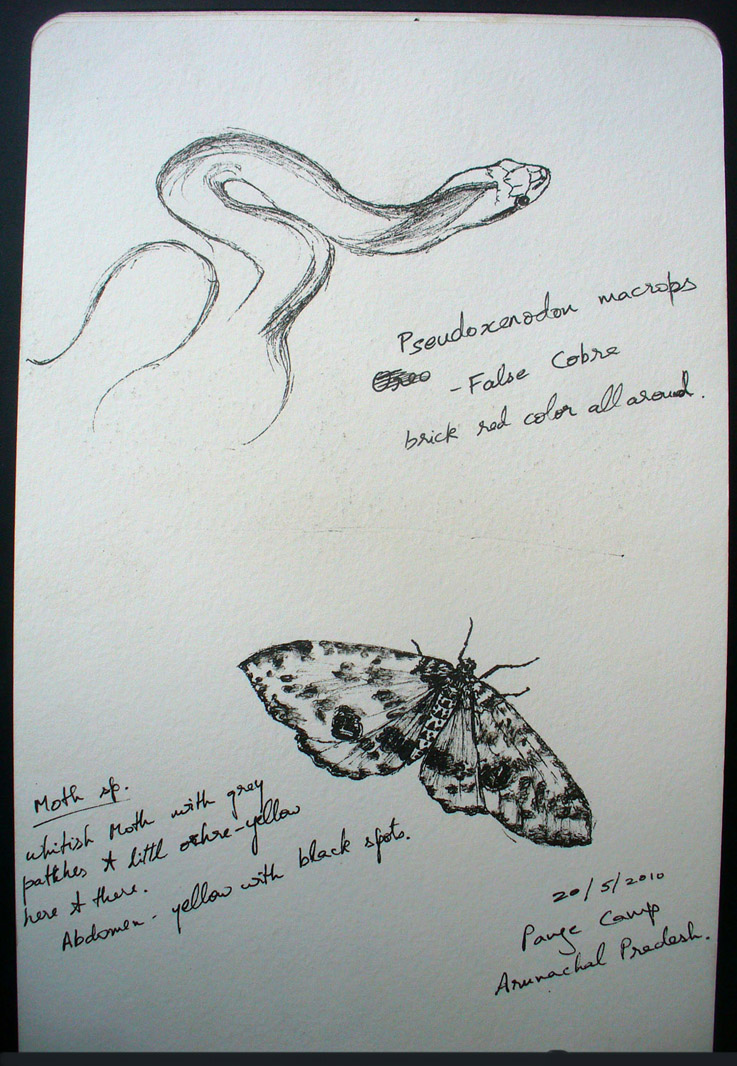 Pseudoxenodon macrops
- False Cobre
brick red color all around.
Moth sp.
whitish Moth with grey
patthes & littl othre-yellow
here & there.
Abdomen - yellow with black spots.
20/5/2010
Pange Camp
Arunachal Pradesh.